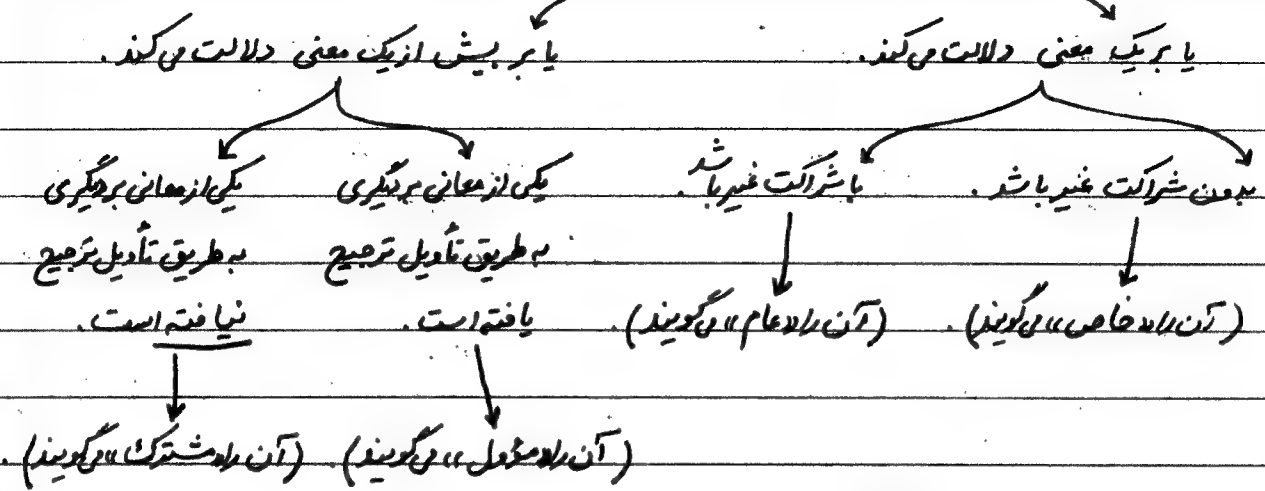 یا بر یک معنی دلالت می‌کند.
یا بر بیش از یک معنی دلالت می‌کند.
بدون شراکت غیر باشد.
با شراکت غیر باشد.
یکی از معانی بر دیگری
به طریق تأویل ترجیح
یافته است.
یکی از معانی بر دیگری
به طریق تأویل ترجیح
نیافته است.
(آن را «خاص» می‌گویند).
(آن را «عام» می‌گویند).
(آن را «مؤول» می‌گویند)
(آن را «مشترک» می‌گویند).